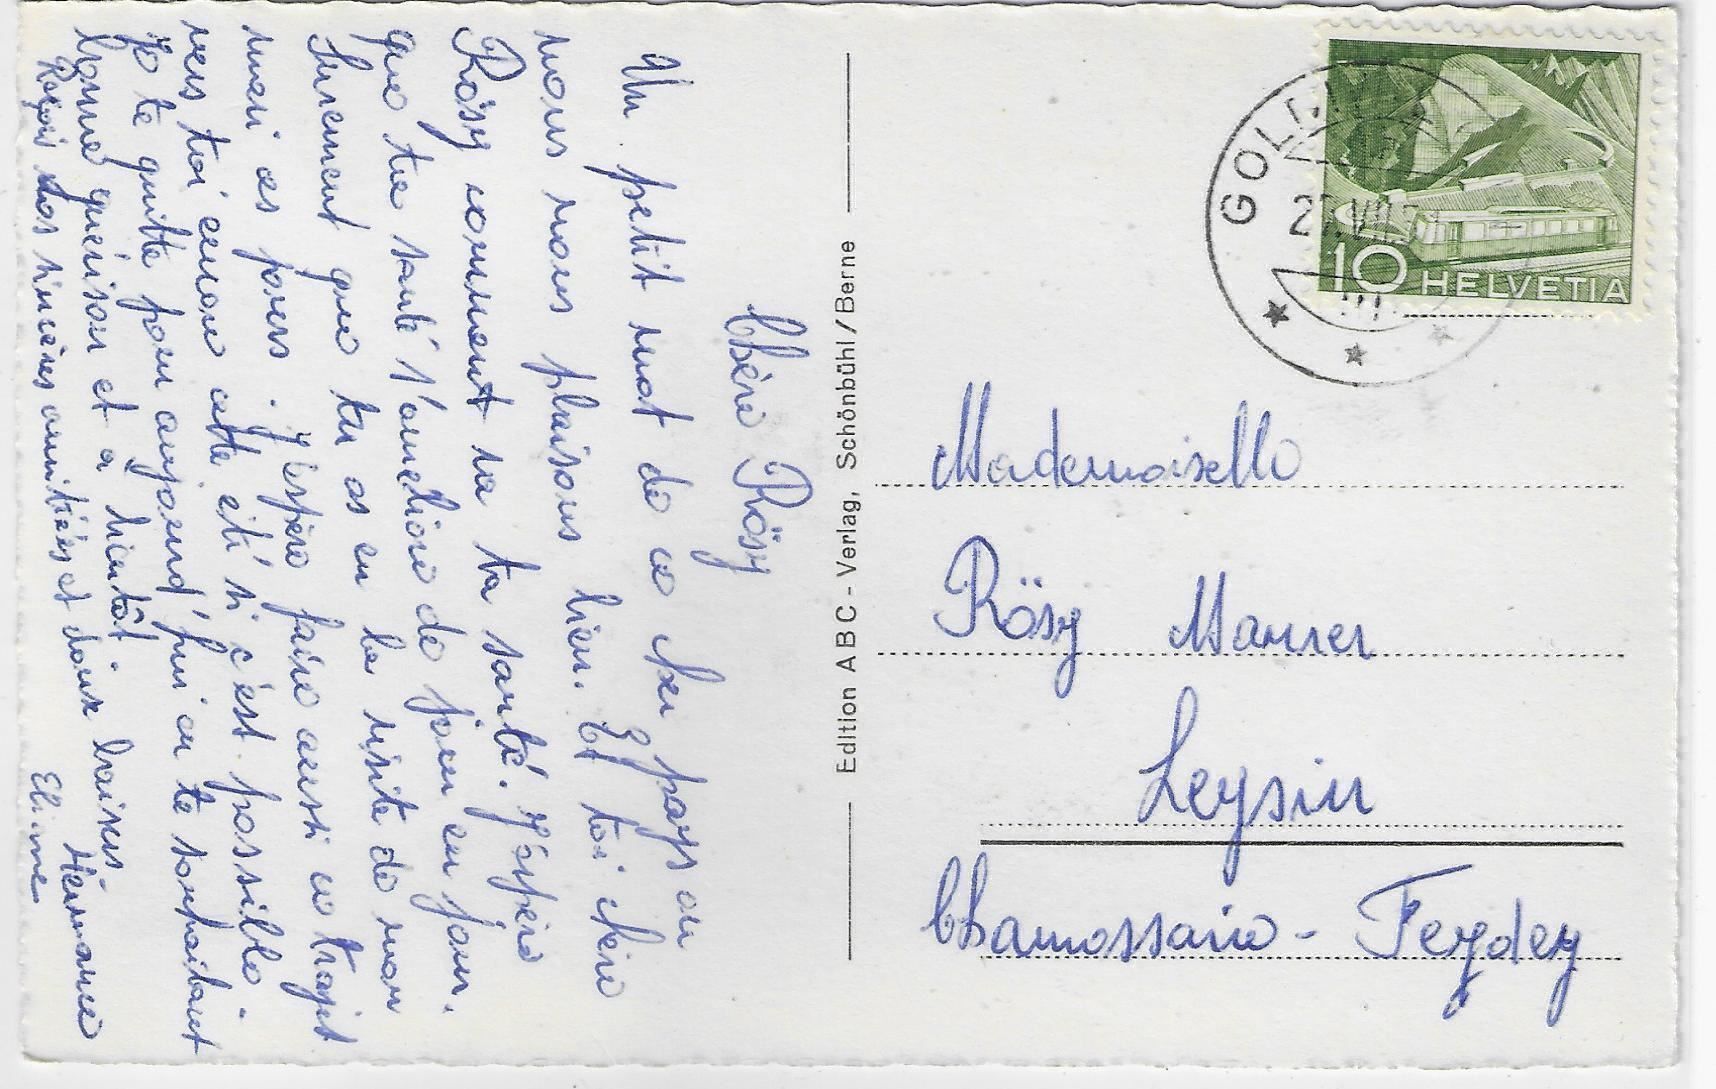 Chère Rösy
Un petit mot de ce cher pays où
nous nous plaisons bien. Et toi chère
Rösy comment va ta santé. J'espère
que ta santé s'améliore de jour en jour.
Surement que tu as eu la visite de mon
mari ces jours. J'espère faire aussi ce trajet
vers toi encore cette été si c'est possible.
Je te quitte pour aujourd'hui en te souhaitant
bonne guérison et a bientôt.
Reçois nos sincères amitiés et doux baisers
Hermance
Eliane
Edition ABC - Verlag, Schönbühl / Berne
10 HELVETIA
Mademoiselle
Rösy Maurer
Leysin
Chamossaire - Feydey